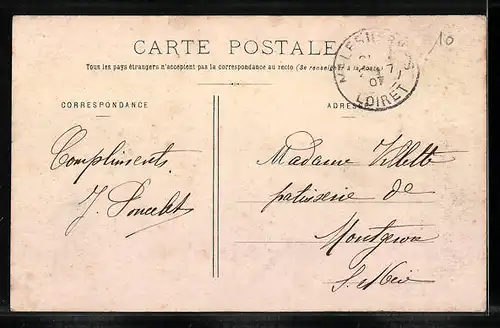 10
CARTE POSTALE
Tous les pays étrangers n'acceptent pas la correspondance au recto (Se renseigner à la Poste)
MALESHERBES
07
LOIRET
CORRESPONDANCE
ADRESSE
Compliments
J. Poncelet
Madame Villette
patisserie de
Montgeron
S. et Oise